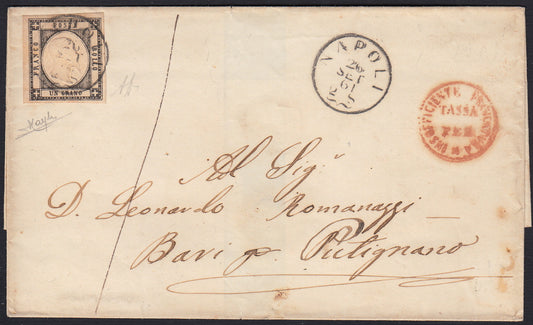 FRANCO
BOLLO
UN GRANO
NAPOLI
26
SET
61
2 S
INSUFFICIENTE
TASSA
PER
Al Sigr
D. Leonardo Romanazzi
Bari p. Putignano